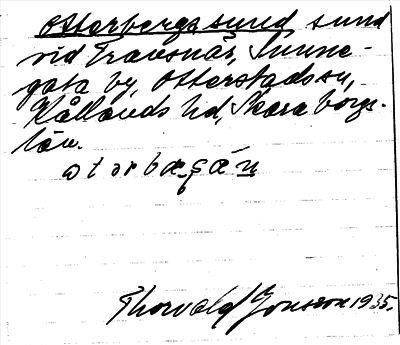 Otterbergssund, sund
vid Travsnär, Sunne-
gata by, Otterstads sn,
Kållands hd, Skaraborgs
län.
Thorvald Jonsson 1935.